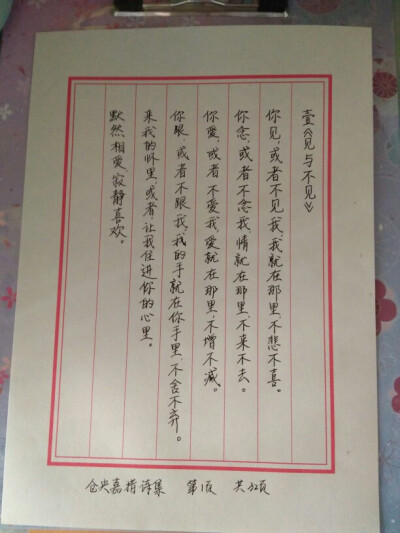 壹《见与不见》
你见,或者不见我,我就在那里,不悲不喜。
你念,或者不念我,情就在那里,不来不去。
你爱,或者不爱我,爱就在那里,不增不减。
你跟,或者不跟我,我的手就在你手里,不舍不弃。
来我的怀里,或者,让我住进你的心里。
默然相爱,寂静喜欢。
仓央嘉措诗集 第1页 共32页